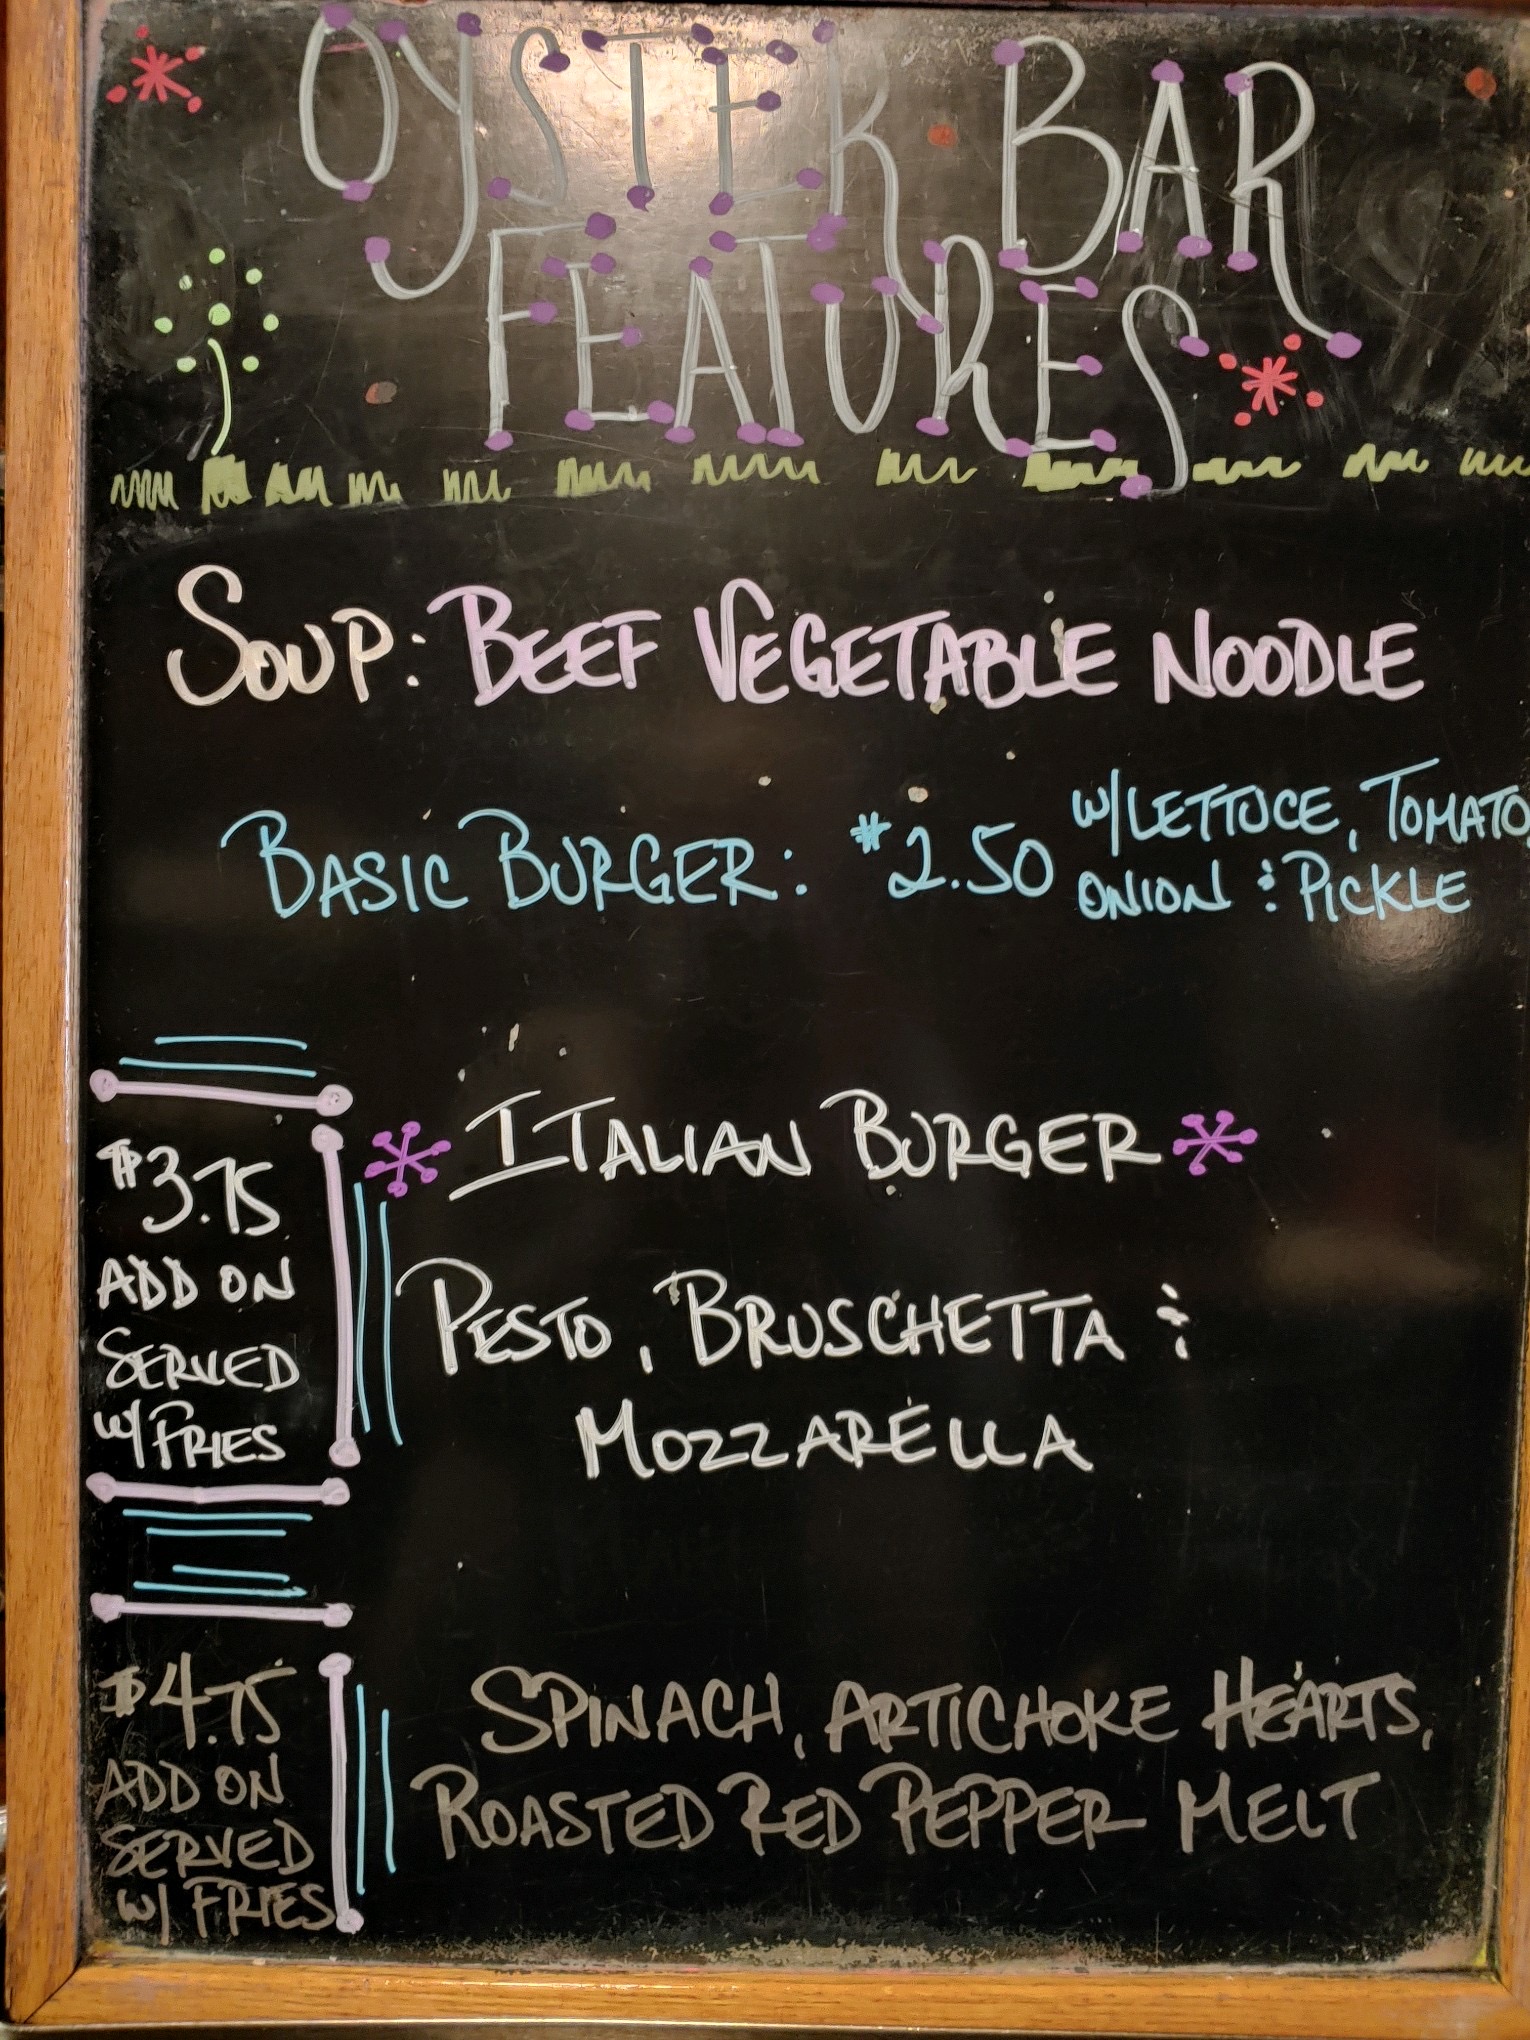 OYSTER BAR
FEATURES
SOUP: BEEF VEGETABLE NOODLE
BASIC BURGER: $2.50 W/LETTUCE, TOMATO,
ONION & PICKLE
$3.75
ADD ON
SERVED
W/FRIES
ITALIAN BURGER
PESTO, BRUSCHETTA &
MOZZARELLA
$4.75
ADD ON
SERVED
W/ FRIES
SPINACH, ARTICHOKE HEARTS,
ROASTED RED PEPPER MELT